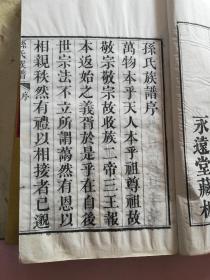 永遠堂藏板
孫氏族譜序
萬物本乎天人本乎祖尊祖故
敬宗敬宗故收族二帝三王報
本返始之義胥於是乎在自後
世宗法不立所謂藹然有恩以
相親秩然有禮以相接者已邈
孫氏族譜 序